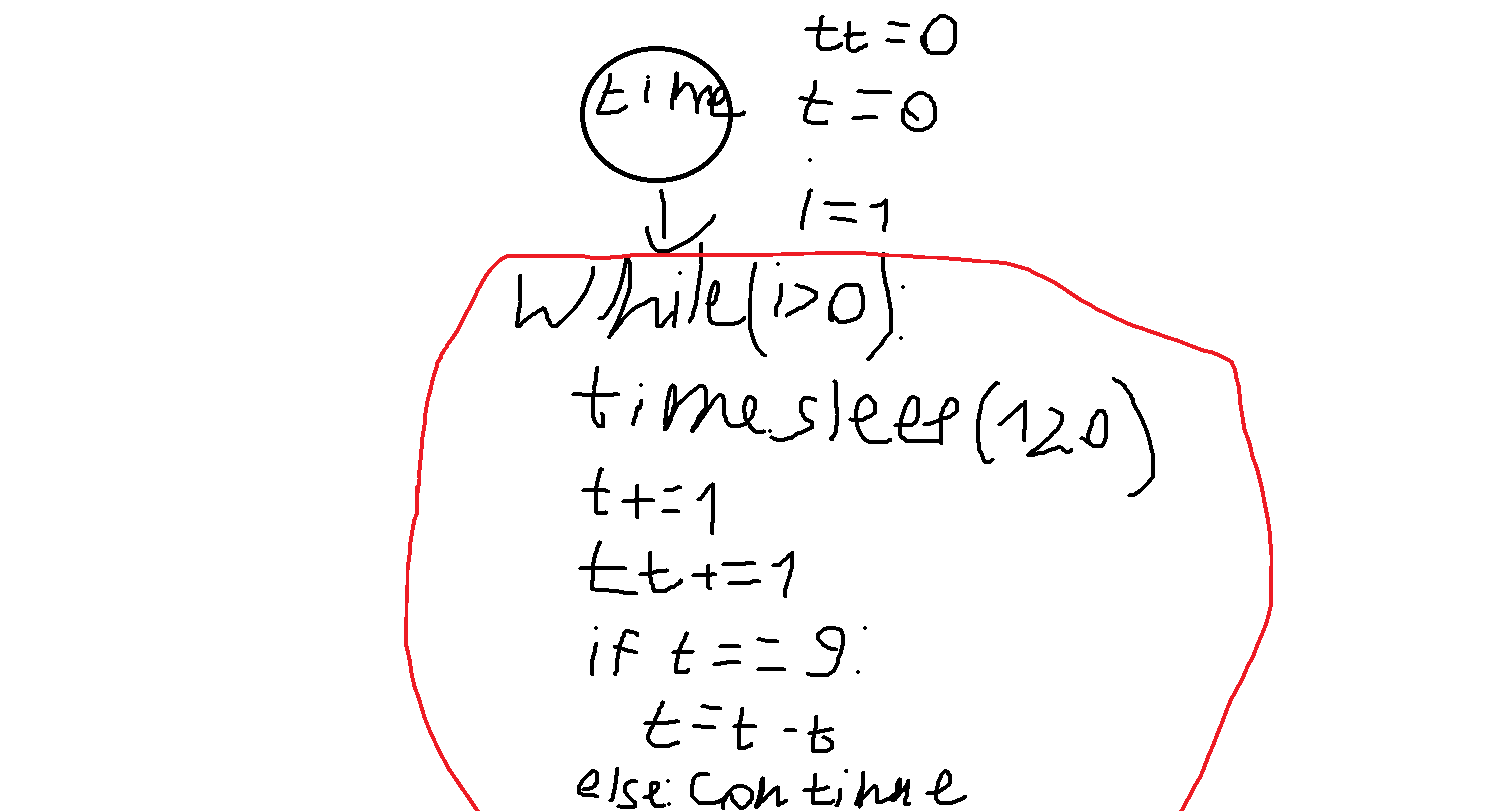 tt=0
time
t=0
i=1
while(i>0):
time.sleep(120)
t+=1
tt+=1
if t==9:
t=t-t
else:continue